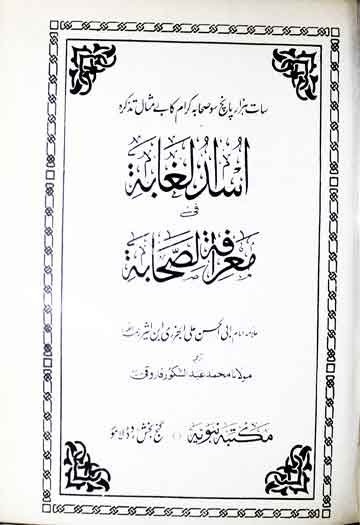 سات ہزار پانچ سو صحابہ کرام کا بے مثال تذکرہ
اُسدُ الغابة
فی
معرفة الصّحابة
علامہ امام ابی الحسن علی الجزری ابن اثیر
مولانا محمد عبد الشکور فاروقی
مکتبہ نبویہ ○ گنج بخش روڈ لاہور